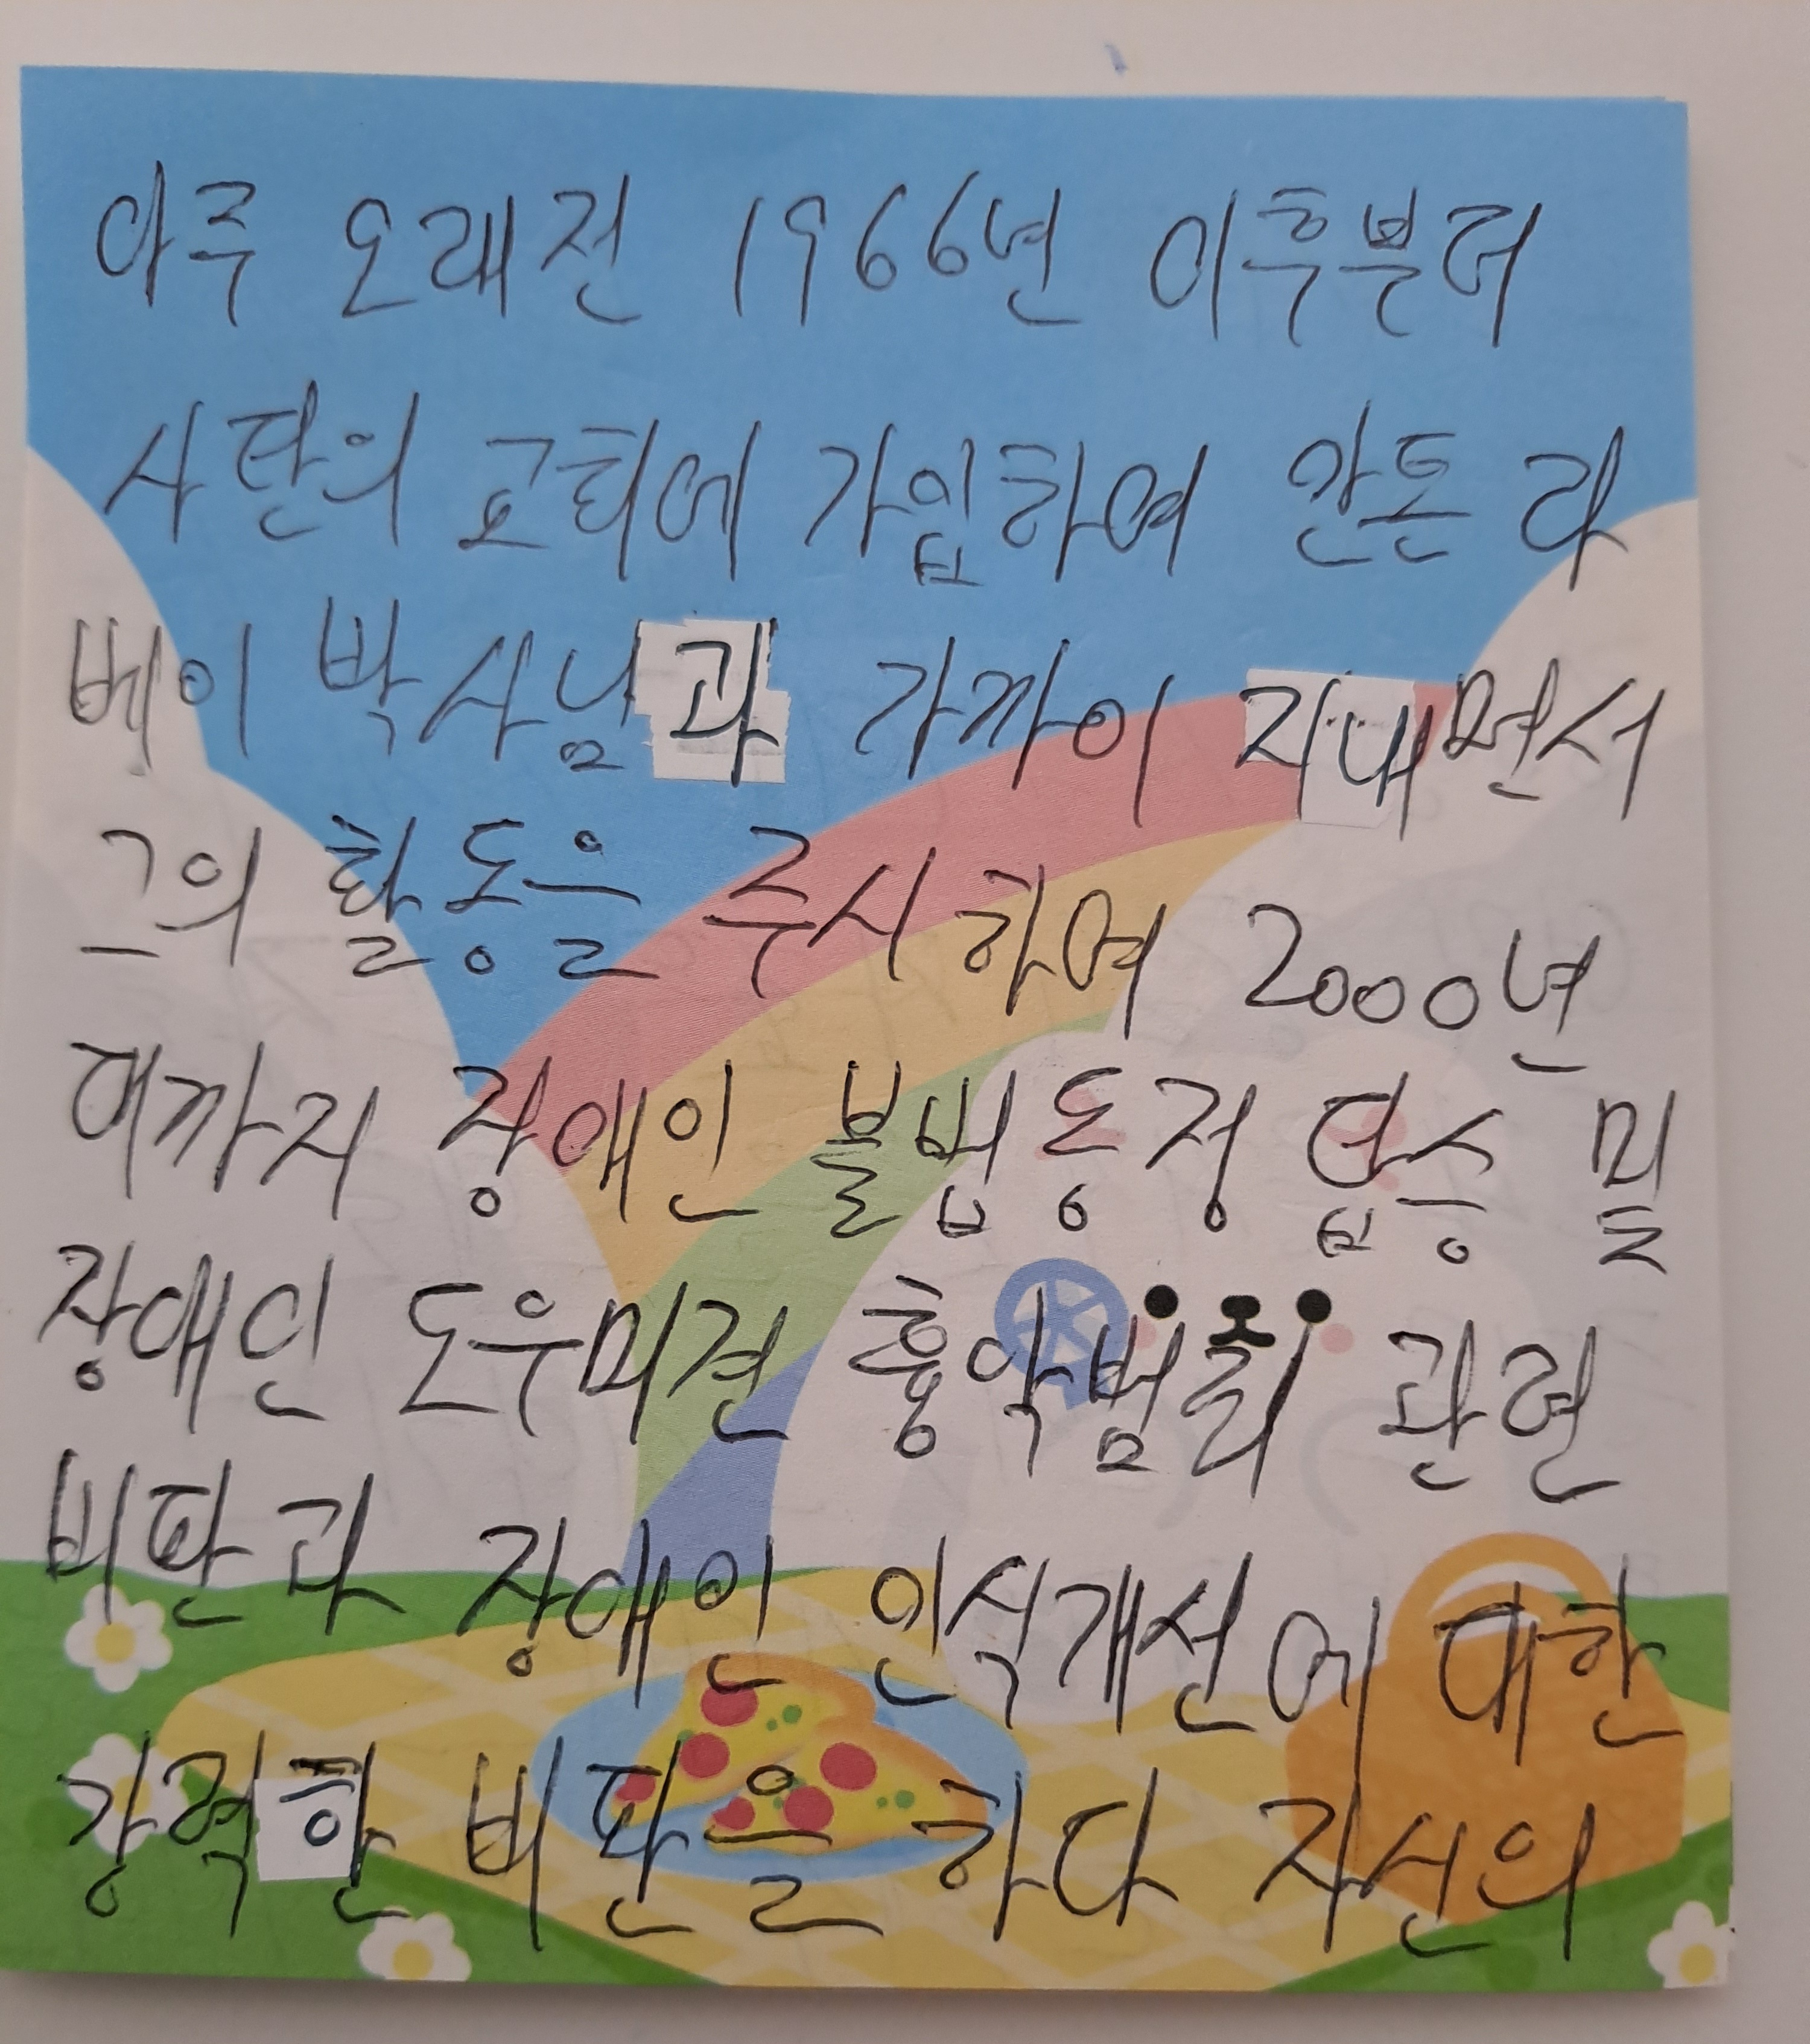 아주 오래전 1966년 이후부터
사탄의 교회에 가입하여 안톤 라
베이 박사님과 가까이 지내면서
그의 활동을 주시하여 2000년
대까지 장애인 불법동정 답승 및
장애인 도우미견 흉악범죄 관련
비판과 장애인 인식개선에 대한
강력한 비판을 하다 자신의